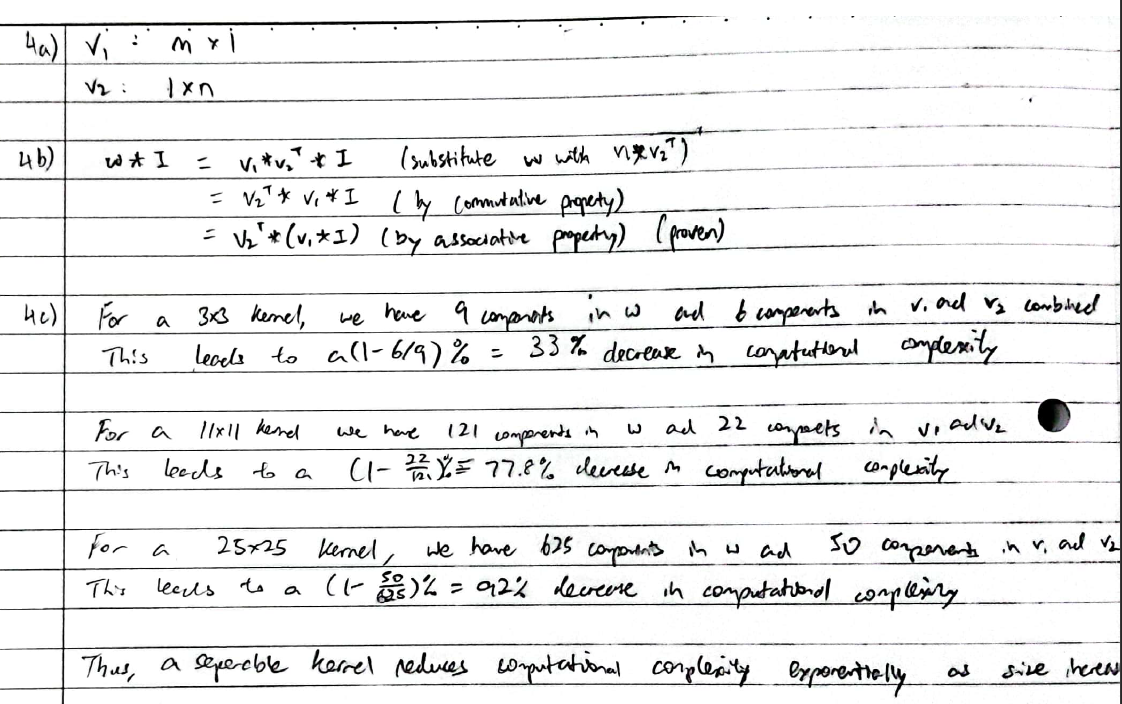 4a) V₁ : m x 1
V₂ : 1 x n
4b) w * I = V₁ * V₂ᵀ * I (substitute w with V₁ * V₂ᵀ)
= V₂ᵀ * V₁ * I (by commutative property)
= V₂ᵀ * (V₁ * I) (by associative property) (proven)
4c) For a 3x3 kernel, we have 9 components in w and 6 components in V₁ and V₂ combined
This leads to a (1 - 6/9) % = 33 % decrease in computational complexity
For a 11x11 kernel we have 121 components in w and 22 components in V₁ and V₂
This leads to a (1 - 22/121)% = 77.8% decrease in computational complexity
For a 25x25 kernel, we have 625 components in w and 50 components in V₁ and V₂
This leads to a (1 - 50/625)% = 92% decrease in computational complexity
Thus, a seperable kernel reduces computational complexity exponentially as size